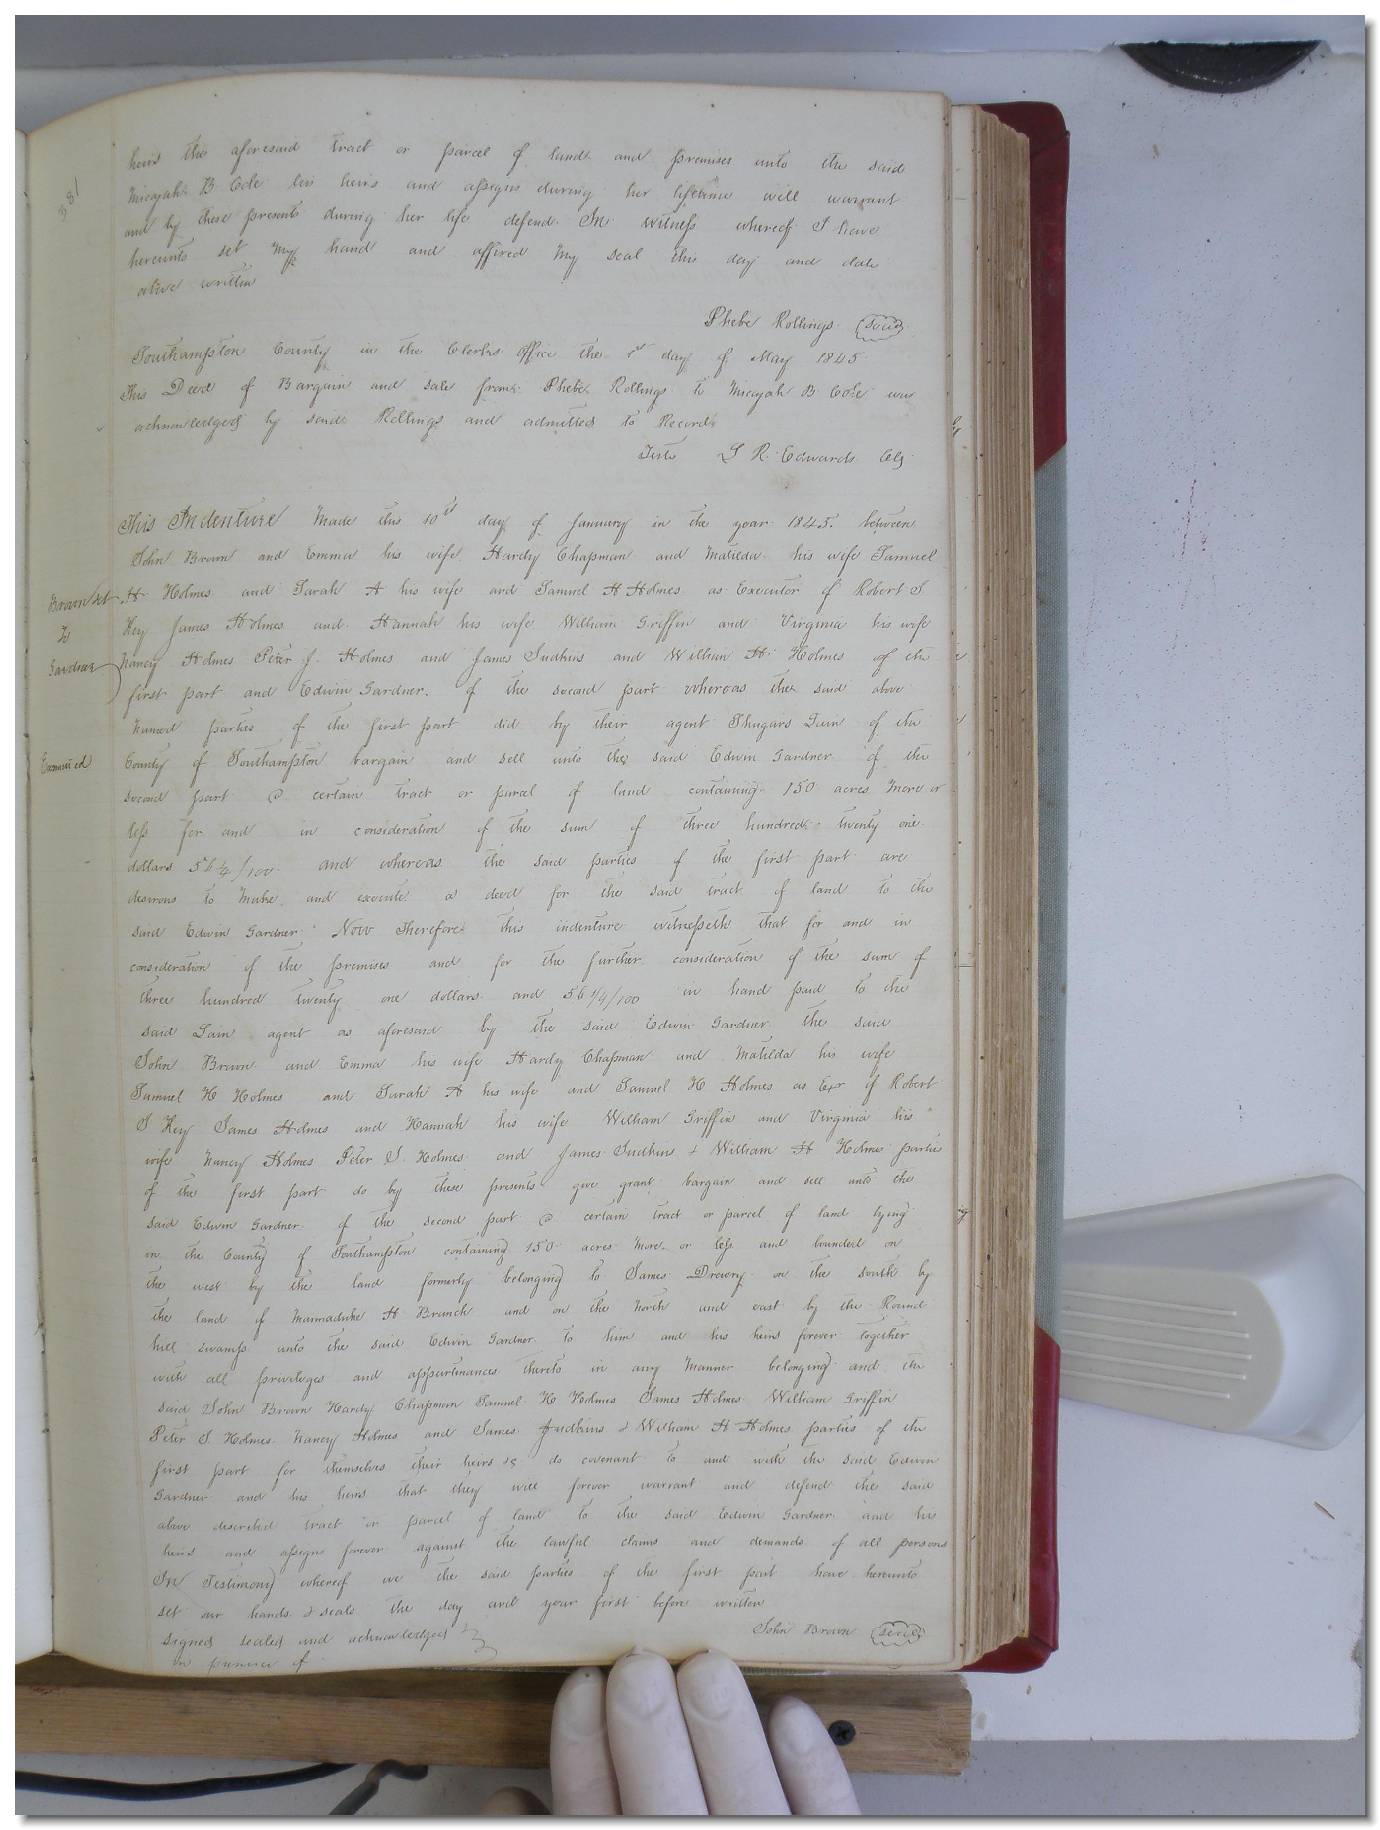 381
heirs the aforesaid tract or parcel of land and premises unto the said
Micajah B Cole his heirs and assigns during her lifetime will warrant
and by these presents during her life defend. In witness whereof I have
hereunto set my hand and affixed my seal this day and date
above written
Phebe Rollings Seal
Southampton County in the Clerks office the 1st day of May 1845
This Deed of Bargain and sale from Phebe Rollings to Micajah B Cole was
acknowledged by said Rollings and admitted to Record
Teste L R Edwards Clk
This Indenture Made this 10th day of January in the year 1845. between
John Brown and Emma his wife Hardy Chapman and Matilda his wife Samuel
Brown &c
H Holmes and Sarah A his wife and Samuel H Holmes as Executor of Robert S
To
Key James Holmes and Hannah his wife William Griffin and Virginia his wife
Gardner
Nancy Holmes Peter J. Holmes and James Judkins and William H Holmes of the
first part and Edwin Gardner. of the second part whereas the said above
named parties of the first part did by their agent of the
Examined
County of Southampton bargain and sell unto the said Edwin Gardner of the
second part a certain tract or parcel of land containing 150 acres More or
less for and in consideration of the sum of three hundred twenty one
dollars 56 1/4/100 and whereas the said parties of the first part are
desirous to Make and execute a deed for the said tract of land to the
said Edwin Gardner Now Therefore this indenture witnesseth that for and in
consideration of the premises and for the further consideration of the sum of
three hundred twenty one dollars and 56 1/4/100 in hand paid to the
said agent as aforesaid by the said Edwin Gardner the said
John Brown and Emma his wife Hardy Chapman and Matilda his wife
Samuel H Holmes and Sarah A his wife and Samuel H Holmes as Exr of Robert
S Key James Holmes and Hannah his wife William Griffin and Virginia his
wife Nancy Holmes Peter J. Holmes and James Judkins & William H Holmes parties
of the first part do by these presents give grant bargain and sell unto the
said Edwin Gardner of the second part a certain tract or parcel of land lying
in the County of Southampton containing 150 acres More or less and bounded on
the west by the land formerly belonging to James Drewry on the south by
the land of Marmaduke H Branch and on the North and east by the Round
hill swamp unto the said Edwin Gardner to him and his heirs forever together
with all privileges and appurtinances thereto in any Manner belonging and the
said John Brown Hardy Chapman Samuel H Holmes James Holmes William Griffin
Peter J. Holmes Nancy Holmes and James Judkins & William H Holmes parties of the
first part for themselves their heirs &c do covenant to and with the said Edwin
Gardner and his heirs that they will forever warrant and defend the said
above described tract or parcel of land to the said Edwin Gardner and his
heirs and assigns forever against the lawful claims and demands of all persons
In Testimony whereof we the said parties of the first part have hereunto
set our hands & seals the day and year first before written
John Brown Seal
signed sealed and acknowledged
in presence of